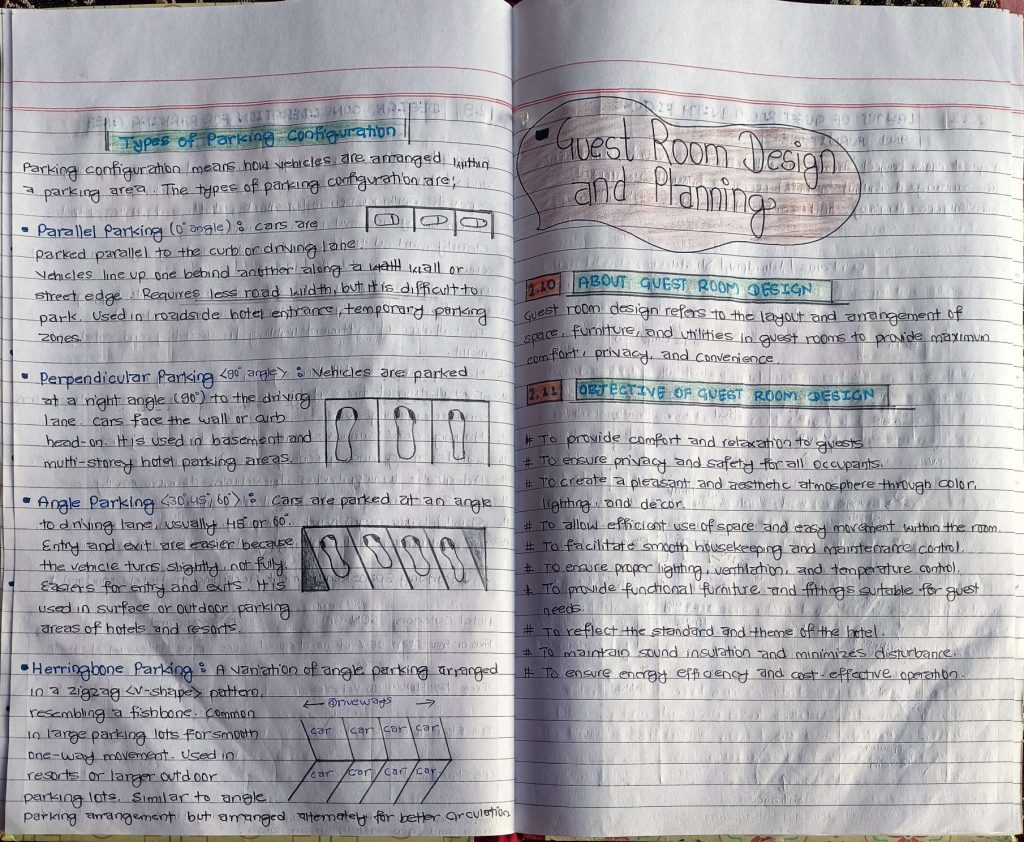 Types of Parking Configuration
Parking configuration means how vehicles are arranged within
a parking area. The types of parking configuration are;
• Parallel Parking (0° angle) : cars are
parked parallel to the curb or driving lane.
Vehicles line up one behind another along a wall or
street edge. Requires less road width, but it is difficult to
park. Used in roadside hotel entrance, temporary parking
zones.
• Perpendicular Parking <90° angle> : Vehicles are parked
at a right angle (90°) to the driving
lane. Cars face the wall or curb
head-on. It is used in basement and
multi-storey hotel parking areas.
• Angle Parking <30°,45°,60°> : Cars are parked at an angle
to driving lane, usually 45° or 60°.
Entry and exit are easier because
the vehicle turns slightly, not fully.
Easiers for entry and exits. It is
used in surface or outdoor parking
areas of hotels and resorts.
• Herringbone Parking : A variation of angle parking arranged
in a zigzag <v-shape> pattern,
resembling a fishbone. Common
in large parking lots for smooth
one-way movement. Used in
resorts or larger outdoor
parking lots. Similar to angle
parking arrangement but arranged alternately for better circulation
← Driveways →
car car car car
car car car car
• Guest Room Design
and Planning
2.10 ABOUT GUEST ROOM DESIGN
Guest room design refers to the layout and arrangement of
space, furniture, and utilities in guest rooms to provide maximun
comfort, privacy, and convenience.
2.11 OBJECTIVE OF GUEST ROOM DESIGN
# To provide comfort and relaxation to guests
# To ensure privacy and safety for all occupants.
# To create a pleasant and aesthetic atmosphere through color,
lighting, and decor.
# To allow efficient use of space and easy movement within the room.
# To facilitate smooth housekeeping and maintenance control.
# To ensure proper lighting, ventilation, and temperature control.
# To provide functional furniture and fittings suitable for guest
needs.
# To reflect the standard and theme of the hotel.
# To maintain sound insulation and minimizes disturbance.
# To ensure energy efficiency and cost-effective operation.